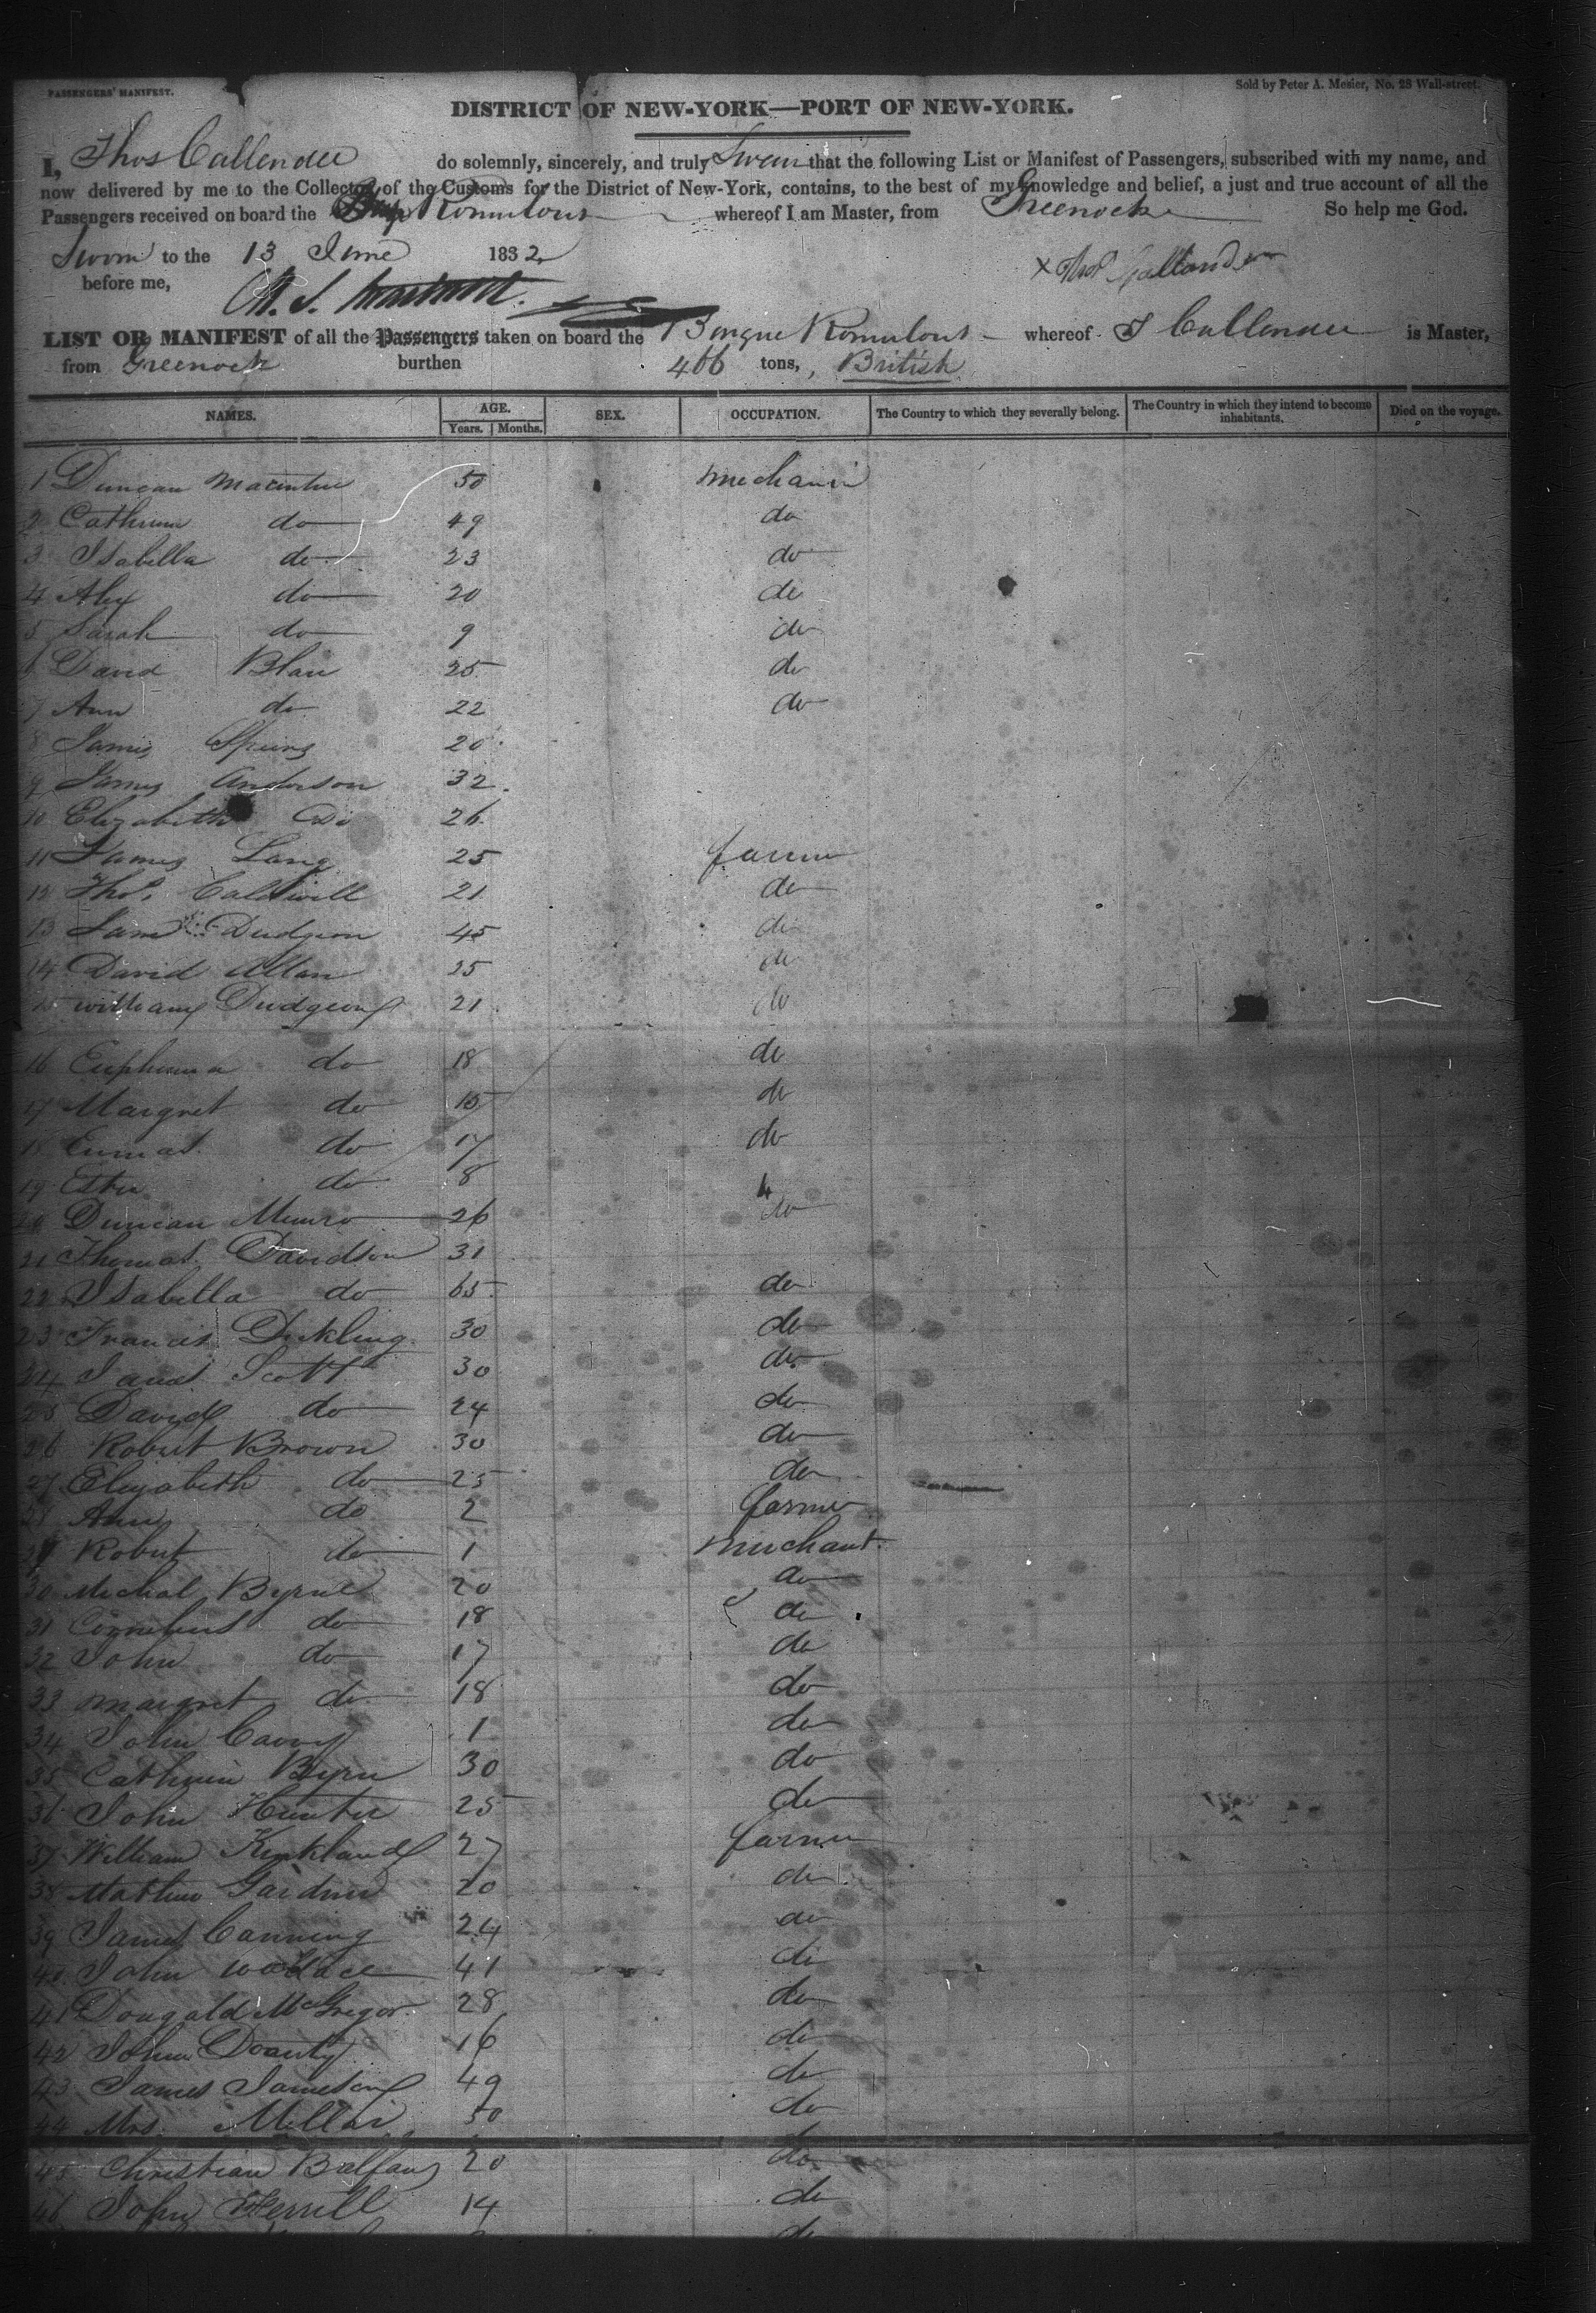 PASSENGERS' MANIFEST.
Sold by Peter A. Mesier, No. 28 Wall-street.
DISTRICT OF NEW-YORK—PORT OF NEW-YORK.
I, Thos Callender do solemnly, sincerely, and truly Swear that the following List or Manifest of Passengers, subscribed with my name, and
now delivered by me to the Collector of the Customs for the District of New-York, contains, to the best of my knowledge and belief, a just and true account of all the
Passengers received on board the Romulous whereof I am Master, from Greenock So help me God.
Sworn to the 13 June 1832
before me,
x Thos Callender
LIST OR MANIFEST of all the Passengers taken on board the Barque Romulous whereof T Callender is Master,
from Greenock burthen 466 tons, British
NAMES. AGE. SEX. OCCUPATION. The Country to which they severally belong. The Country in which they intend to become inhabitants. Died on the voyage.
Years. Months.
1 Duncan 50 mechanic
2 do 49 do
3 Isabella do 23 do
4 Alex do 20 do
5 Sarah do 9 do
6 David Blair 25 do
7 Ann do 22 do
8 James Speirs 20
9 James Anderson 32
10 Elizabeth Do 26
11 James Lang 25 farmer
12 Thos. Caldwell 21 do
13 Dudgeon 45 do
14 David Allan 25 do
15 William Dudgeon 21 do
16 Euphemia do 18 do
17 Margret do 15 do
18 do 17 do
19 Ester do 8
20 Duncan Munro 26 do
21 Thomas Davidson 31
22 Isabella do 65 do
23 Francis 30 do
24 Scott 30 do
25 David do 24 do
26 Robert Brown 30 do
27 Elizabeth do 25 do
28 Ann do 2 farmer
29 Robert do 1 merchant
30 Michal Byrne 20 do
31 Cornelius do 18 do
32 John do 17 do
33 margret do 18 do
34 John 1 do
35 Byrn 30 do
36 John Hunter 25 do
37 William Kirkland 27 farmer
38 Mathew Gardner 20 do
39 James Canning 24 do
40 John Wallace 41 do
41 Dougald McGregor 28 do
42 John 16 do
43 James Jameson 49 do
44 Mrs. Millar 50 do
45 Christian Balfour 20 do
46 John 14 do
do